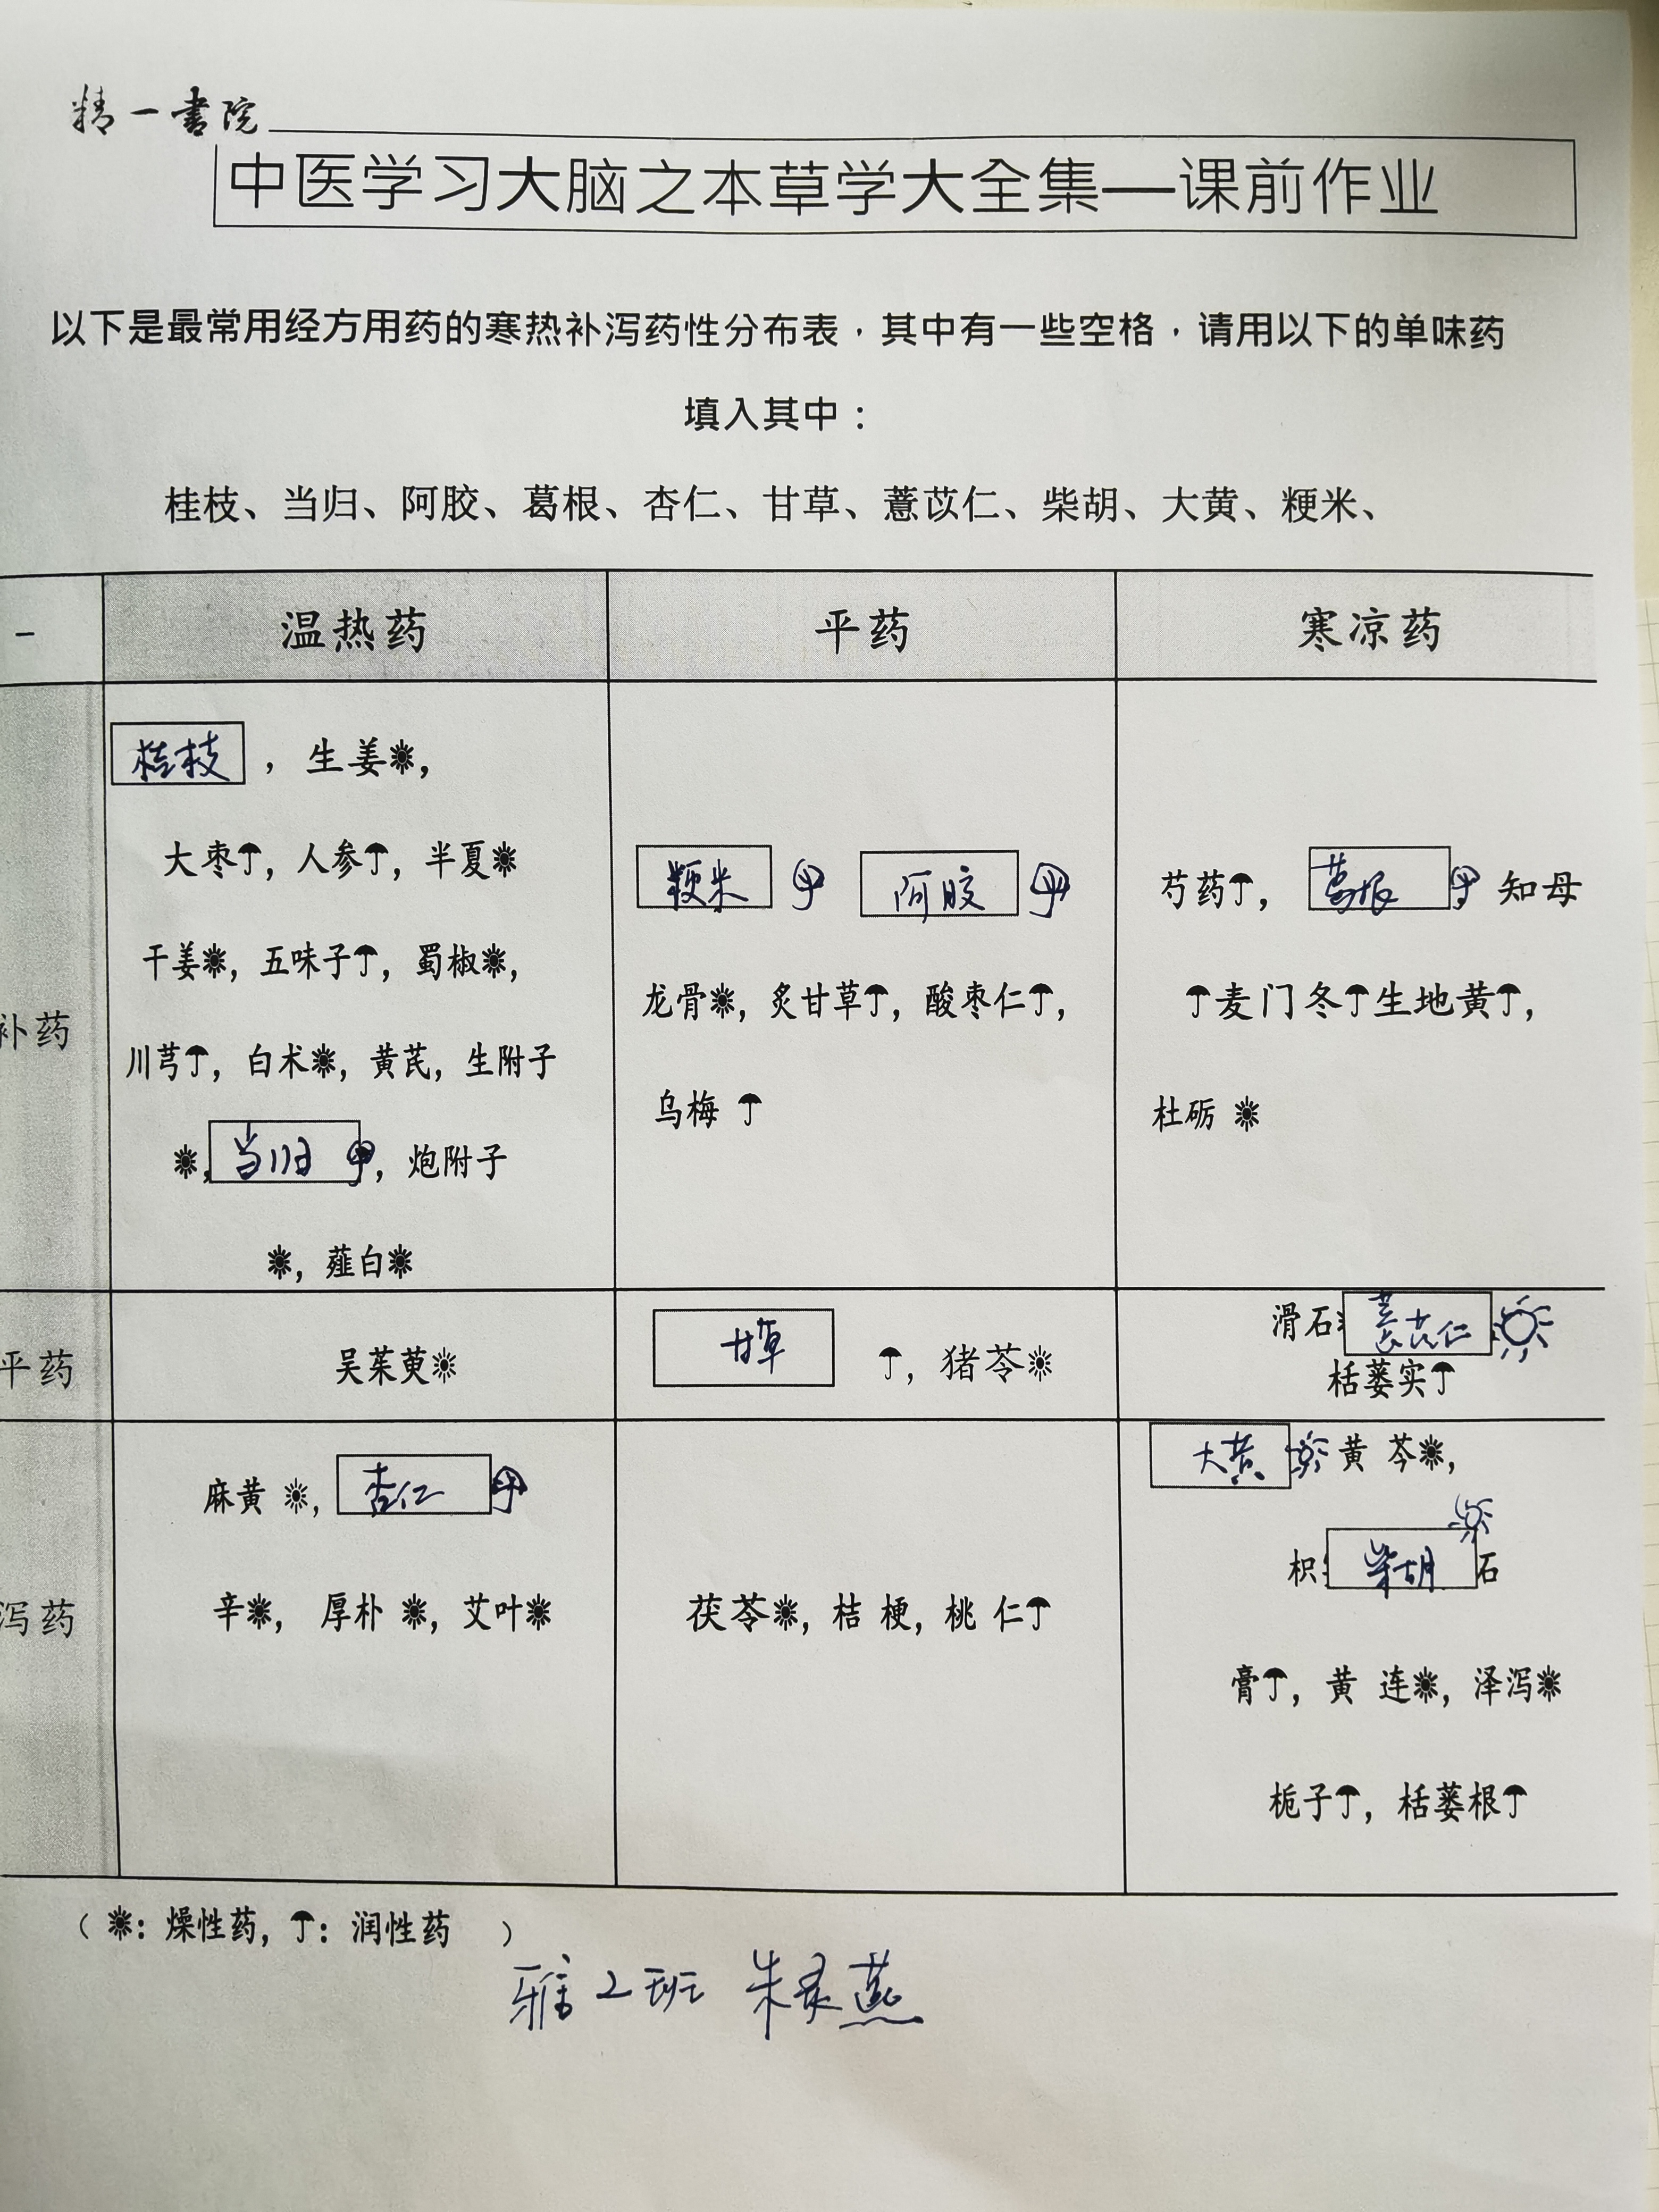 精一書院
中医学习大脑之本草学大全集—课前作业
以下是最常用经方用药的寒热补泻药性分布表，其中有一些空格，请用以下的单味药
填入其中：
桂枝、当归、阿胶、葛根、杏仁、甘草、薏苡仁、柴胡、大黄、粳米、
– 温热药 平药 寒凉药
补药
桂枝，生姜☀，
大枣☂，人参☂，半夏☀
干姜☀，五味子☂，蜀椒☀，
川芎☂，白术☀，黄芪，生附子
☀，当归☂，炮附子
☀，薤白☀
粳米☂ 阿胶☂
龙骨☀，炙甘草☂，酸枣仁☂，
乌梅 ☂
芍药☂，葛根☂ 知母
☂麦门冬☂生地黄☂，
杜砺 ☀
平药
吴茱萸☀
甘草 ☂，猪苓☀
滑石 薏苡仁☀
栝蒌实☂
泻药
麻黄 ☀，杏仁☂
辛☀， 厚朴 ☀，艾叶☀
茯苓☀，桔 梗，桃 仁☂
大黄☀黄 芩☀，
枳 柴胡☀ 石
膏☂，黄 连☀，泽泻☀
栀子☂，栝蒌根☂
（☀：燥性药，☂：润性药 ）
雅2班 朱 燕